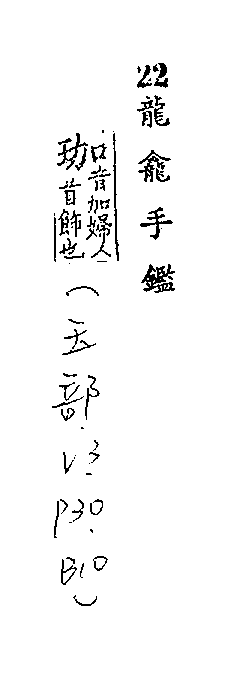 22龍龕手鑑
珈音加婦人首飾也(玉部.V3.P30.B10)